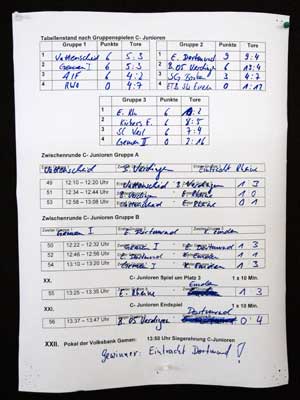 Tabellenstand nach Gruppenspielen C- Junioren
Gruppe 1 Punkte Tore Gruppe 2 Punkte Tore
1 Vattenscheid 6 5:3 1 E. Dortmund 9 9:4
2 Gemen I 6 5:3 2 B. 05 Uerdingen 6
3 6 4:2 3 SG 3 4:7
4 RWO 0 4:7 4 0 1:12
Gruppe 3 Punkte Tore
1 E. Rh.
2 Kickers E. 8:5
3 SC 7:4
4 Gemen II 2:16
Zwischenrunde C- Junioren Gruppe A
Vattenscheid B. Uerdingen Eintracht Rheine
49 12:10 – 12:20 Uhr Vattenscheid B. Uerdingen 1 3
51 12:34 – 12:44 Uhr B. Uerdingen E. Rheine 1 0
53 12:58 – 13:08 Uhr Vattenscheid E. Rheine 0 1
Zwischenrunde C- Junioren Gruppe B
Gemen I E. Dortmund K. Emden
50 12:22 – 12:32 Uhr Gemen I E. Dortmund 1 3
52 12:46 – 12:56 Uhr E. Dortmund K. Emden 1 1
54 13:10 – 13:20 Uhr Gemen I K. Emden 1 3
XX. C- Junioren Spiel um Platz 3 1 x 10 Min.
Emden
55 13:25 – 13:35 Uhr E. Rheine 1 3
XXI. C- Junioren Endspiel 1 x 10 Min.
Dortmund
56 13:37 – 13:47 Uhr B. 05 Uerdingen 0 4
XXII. Pokal der Volksbank Gemen: 13:50 Uhr Siegerehrung C-Junioren
Gewinner: Eintracht Dortmund!